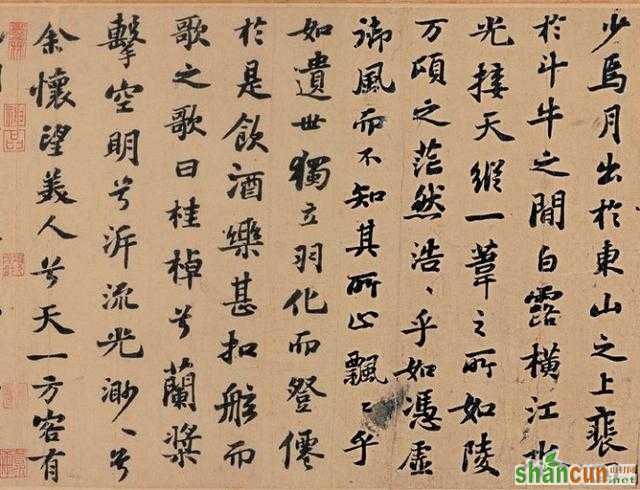 少焉月出於東山之上裵
於斗牛之間白露橫江水
光接天縱一葦之所如陵
万頃之茫然浩〻乎如憑虛
御風而不知其所止飄〻乎
如遺世獨立羽化而登僊
於是飲酒樂甚扣舷而
歌之歌曰桂棹兮蘭槳
擊空明兮泝流光渺〻兮
余懷望美人兮天一方客有
shancun
.net